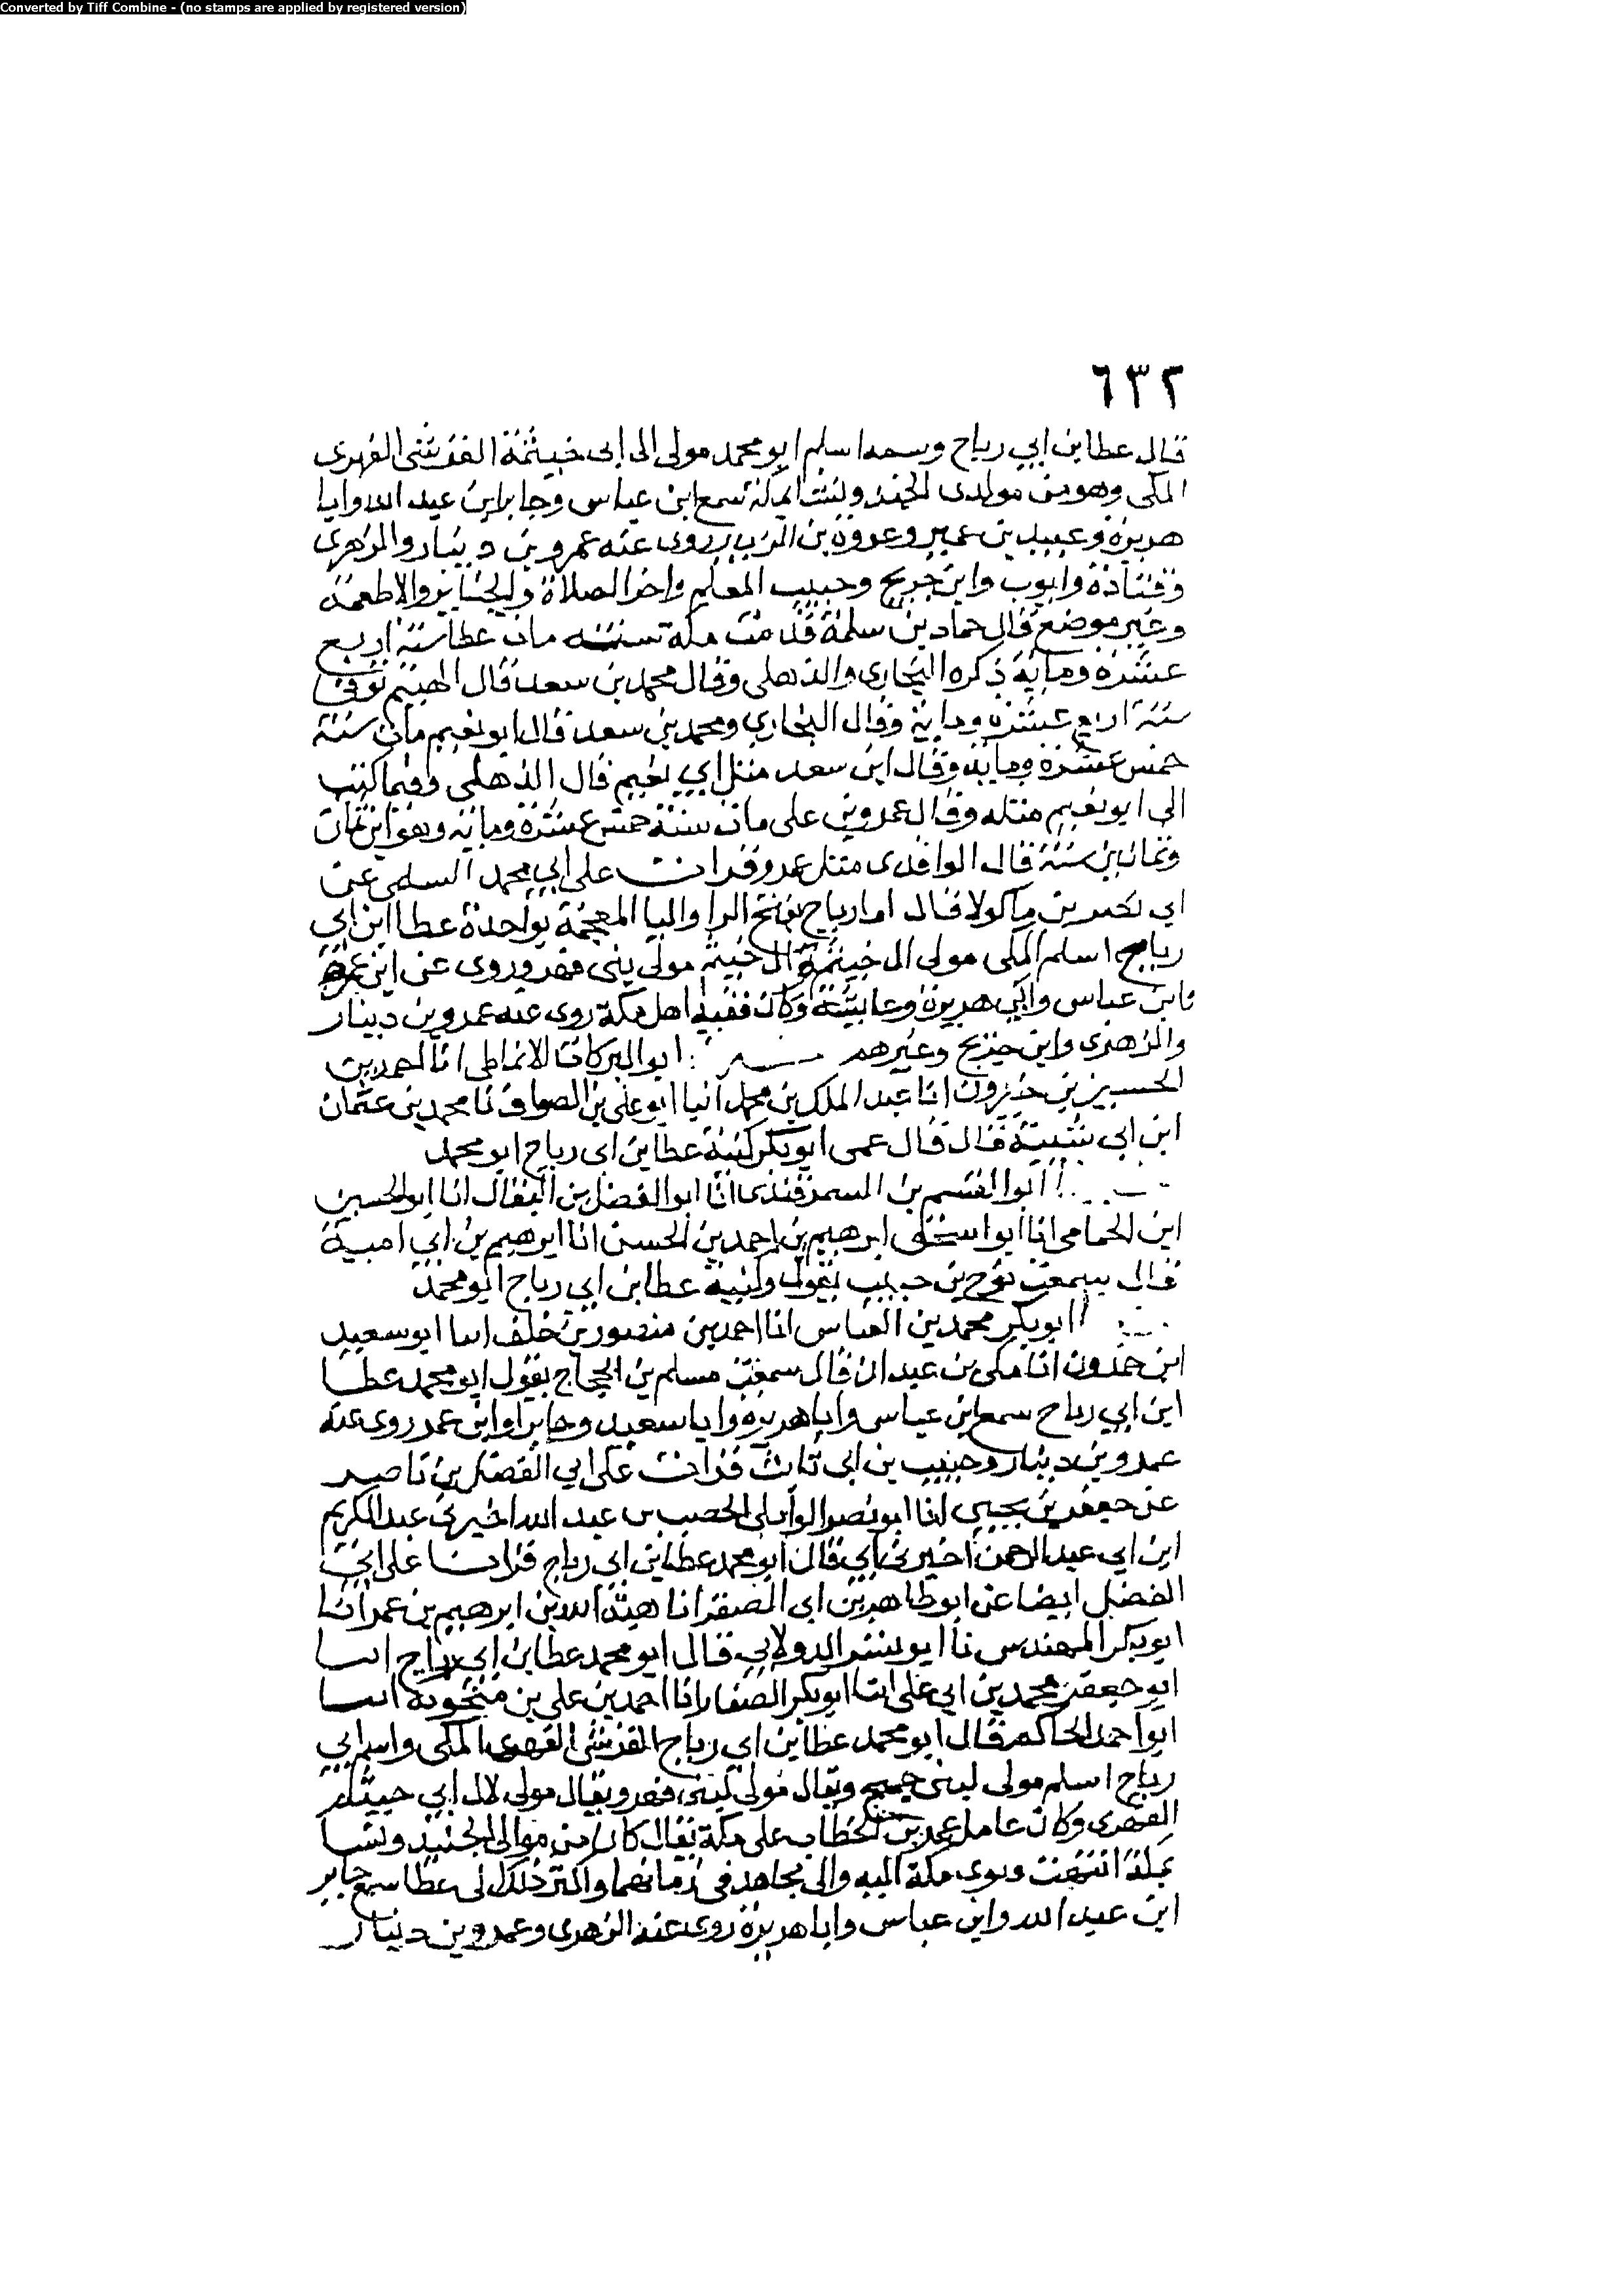 Converted by Tiff Combine - (no stamps are applied by registered version)
٦٣٢
قال عطا بن ابي رباح وسمه اسلم ابو محمد مولى الى ابى خيثمة القرشى الفهرى
المكى وهو من مولدى الجند ونشا بمكة سمع ابن عباس وجابر ابن عبد الله وابا
هريرة وعبيد بن عمير وعروة بن الزبير روى عنه عمرو بن دينار والزهرى
وقتادة وايوب وابن جريج وحبيب المعلم واخر الصلاة والجنايز والاطعمة
وغير موضع قال حماد بن سلمة قدمت مكة سنة مات عطا سنة اربع
عشرة وماية ذكره البخارى والذهلى وقال محمد بن سعد قال الهيثم توفى
سنة اربع عشرة وماية وقال البخاري ومحمد بن سعد قال ابو نعيم مات سنة
خمس عشرة وماية وقال ابن سعد مثل ابي نعيم قال الذهلى وفيما كتب
الى ابو نعيم مثله وقال عمرو بن على مات سنة خمس عشرة وماية وهو ابن ثمان
وثمانين سنة قال الواقدى مثل عمرو قرات على ابي محمد السلمى عن
ابي نصر بن ماكولا قال اما رباح بفتح الرا والبا المعجمة بواحدة عطا ابن ابي
رباح اسلم المكى مولى ال خيثمة مولى بنى فهر وروى عن ابن عمر
وابن عباس وابي هريرة وعايشة وكان فقيه اهل مكة روى عنه عمرو بن دينار
والزهرى وابن جريج وغيرهم ابو البركات الانماطى انا احمد بن
الحسين بن خيرون انا عبد الملك بن محمد انبا ابو على بن الصواف نا محمد بن عثمان
ابن ابي شيبة قال قال عمى ابو بكر كنية عطا بن ابى رباح ابو محمد
ابو القسم بن السمرقندى انا ابو الفضل بن البقال انا ابو الحسين
ابن الحمامى انا ابو اسحق ابرهيم بن احمد بن الحسن انا ابرهيم بن ابي امية
قال سمعت نوح بن حبيب يقول وكنية عطا بن ابي رباح ابو محمد
ابو بكر محمد بن العباس انا احمد بن منصور بن خلف انبا ابو سعيد
ابن حمدون انا مكى بن عبدان قال سمعت مسلم بن الحجاج يقول ابو محمد عطا
ابن ابي رباح سمع ابن عباس وابا هريرة وابا سعيد وجابرا وابن عمر روى عنه
عمرو بن دينار وحبيب بن ابى ثابت قرات على ابي الفضل بن ناصر
عن جعفر بن يحيى انا ابو نصر الوايلى الخصيب بن عبد الله اخبرنى عبد الكريم
ابن ابي عبد الرحمن اخبرنى ابي قال ابو محمد عطا بن ابي رباح قرات على ابى
الفضل ايضا عن ابو طاهر بن ابى الصقر انا هبة الله بن ابرهيم بن عمر انا
ابو بكر المهندس نا ابو بشر الدولابي قال ابو محمد عطا بن ابي رباح انبا
ابو جعفر محمد بن ابي على انبا ابو بكر الصفار انا احمد بن على بن منجوية انبا
ابو احمد الحاكم قال ابو محمد عطا بن ابى رباح القرشى الفهرى المكى واسم ابي
رباح اسلم مولى لبنى جمح ويقال مولى لبنى فهر ويقال مولى لال ابي خيثم
الفهرى وكان عامل عمر بن الخطاب على مكة يقال كان من موالى الجنيد ونشا
بمكة انتهت فتوى مكة اليه والى مجاهد فى زمانهما واكثر ذلك الى عطا سمع جابر
ابن عبد الله وابن عباس وابا هريرة روى عنه الزهرى وعمرو بن دينار